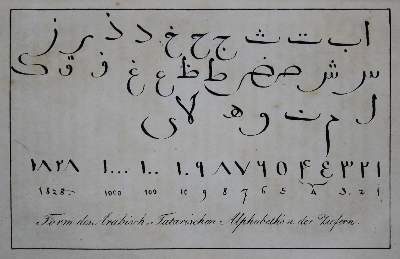 ا ب ت ث ج ح خ د ذ ر ز
س ش ص ض ط ظ ع غ ف ق ك
ل م ن و ه لا ى
١٨٢٨ ١٠٠٠ ١٠٠ ١٠ ٩ ٨ ٧ ٦ ٥ ۴ ٤ ٣ ٢ ١
1828. 1000 100 10 9 8 7 6 5 4 3. 2. 1
Form des Arabisch-Tatarischen Alphabeths u. der Ziefern.